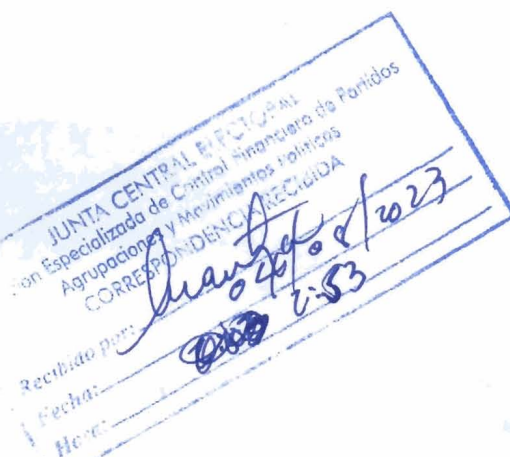 JUNTA CENTRAL ELECTORAL
Especializada de Control Financiero de Partidos
Agrupaciones y Movimientos Politicos
CORRESPONDENCIA RECIBIDA
Recibido por:
Fecha: 04/08/2023
Hora: 2:53